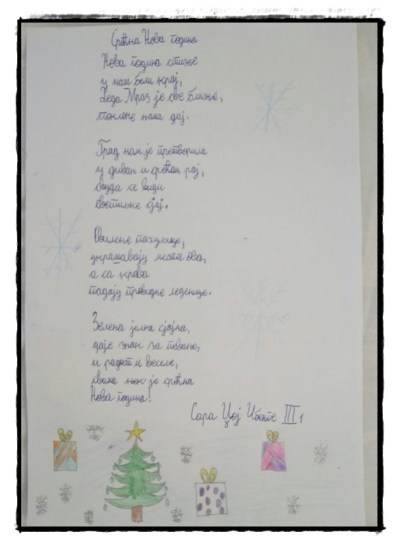 Срећна Нова година
Нова година стиже
у наш бели крај,
Деда Мраз је све ближе,
поклоне нама дај.
Град нам је претворила
у диван и срећан рај,
свуда се види
светлење сјај.
украшавају места ова,
а са крова
падају провидне леденице.
Зелена јелка сјајна,
даје знак за певање,
и радост и весеље,
свима њој је срећна
Нова година!
Сара Цој III1